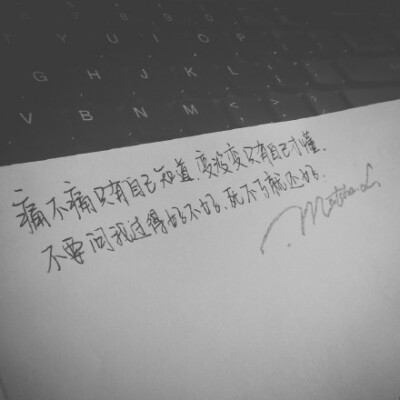 Y U I O P
G H J K L
V B N M < >
痛不痛只有自己知道,变没变只有自己才懂.
不要问我过得好不好,死不了就还好.